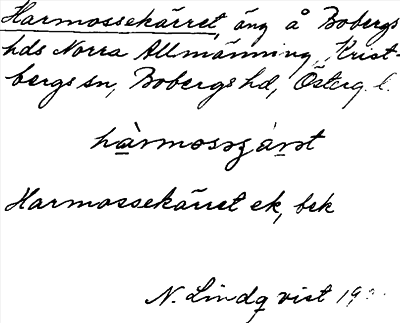 Harmossekärret, äng å Bobergs
hds Norra Allmänning, Krist-
bergs sn, Bobergs hd, Österg. l.
hàrmosəʒárət
Harmossekärret ek, bek
N. Lindqvist 19